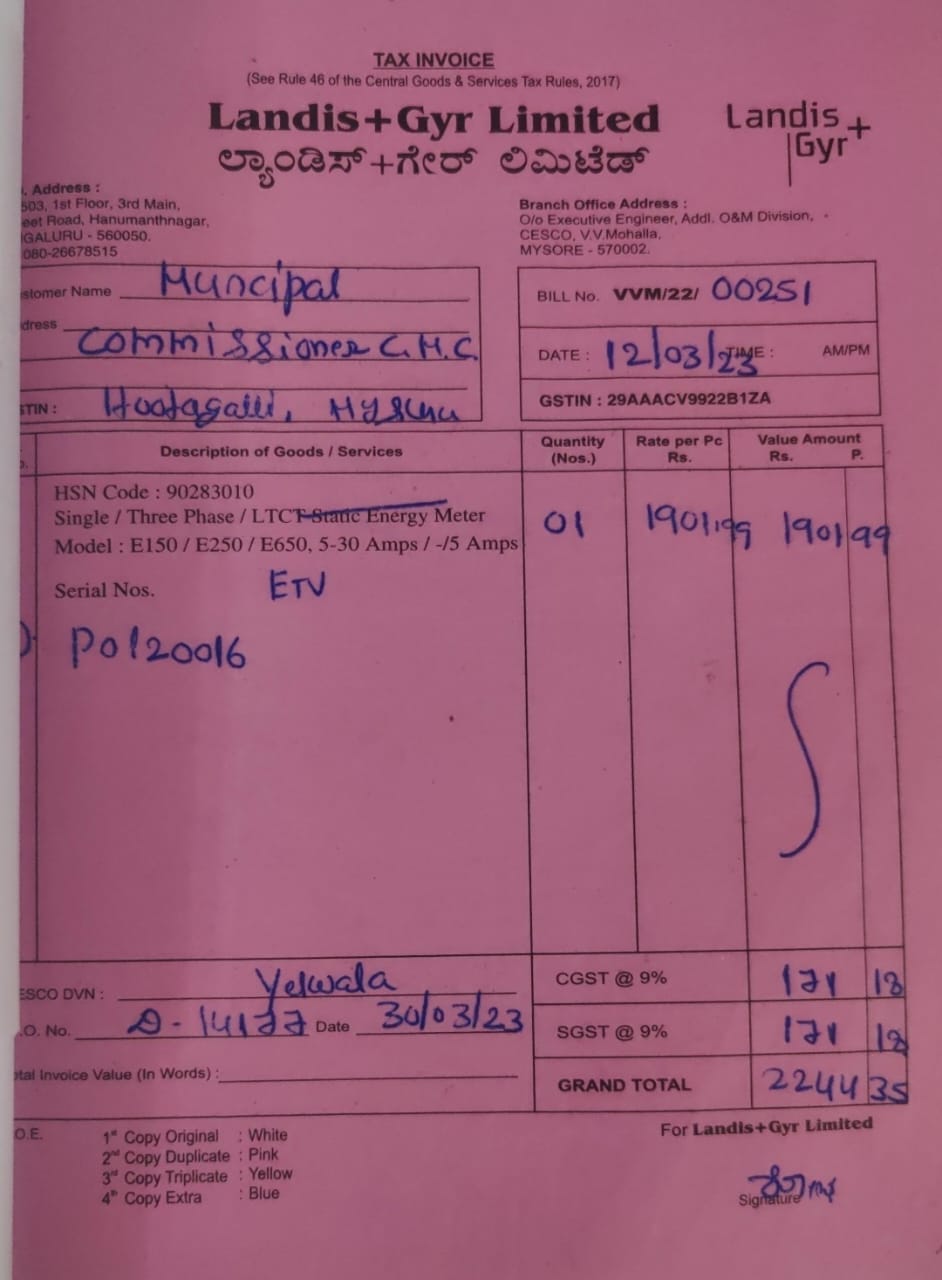 TAX INVOICE
(See Rule 46 of the Central Goods & Services Tax Rules, 2017)
Landis+Gyr Limited
ಲ್ಯಾಂಡಿಸ್+ಗೇರ್ ಲಿಮಿಟೆಡ್
Landis
Gyr+
. Address :
503, 1st Floor, 3rd Main,
eet Road, Hanumanthnagar,
GALURU - 560050.
080-26678515
Branch Office Address :
O/o Executive Engineer, Addl. O&M Division,
CESCO, V.V.Mohalla,
MYSORE - 570002.
stomer Name Muncipal
dress Commissioner C.M.C.
STIN : Hootagalli,
BILL No. VVM/22/ 00251
DATE : 12/03/23 TIME : AM/PM
GSTIN : 29AAACV9922B1ZA
Description of Goods / Services Quantity (Nos.) Rate per Pc Rs. Value Amount Rs. P.
HSN Code : 90283010
Single / Three Phase / LTCT Static Energy Meter 01 1901.99 1901 99
Model : E150 / E250 / E650, 5-30 Amps / -/5 Amps
Serial Nos. ETV
P0120016
ESCO DVN : Yelwala
.O. No. D-14177 Date 30/03/23
otal Invoice Value (In Words) :
CGST @ 9% 171 18
SGST @ 9% 171 18
GRAND TOTAL 2244 35
.O.E.
1st Copy Original : White
2nd Copy Duplicate : Pink
3rd Copy Triplicate : Yellow
4th Copy Extra : Blue
For Landis+Gyr Limited
Signature